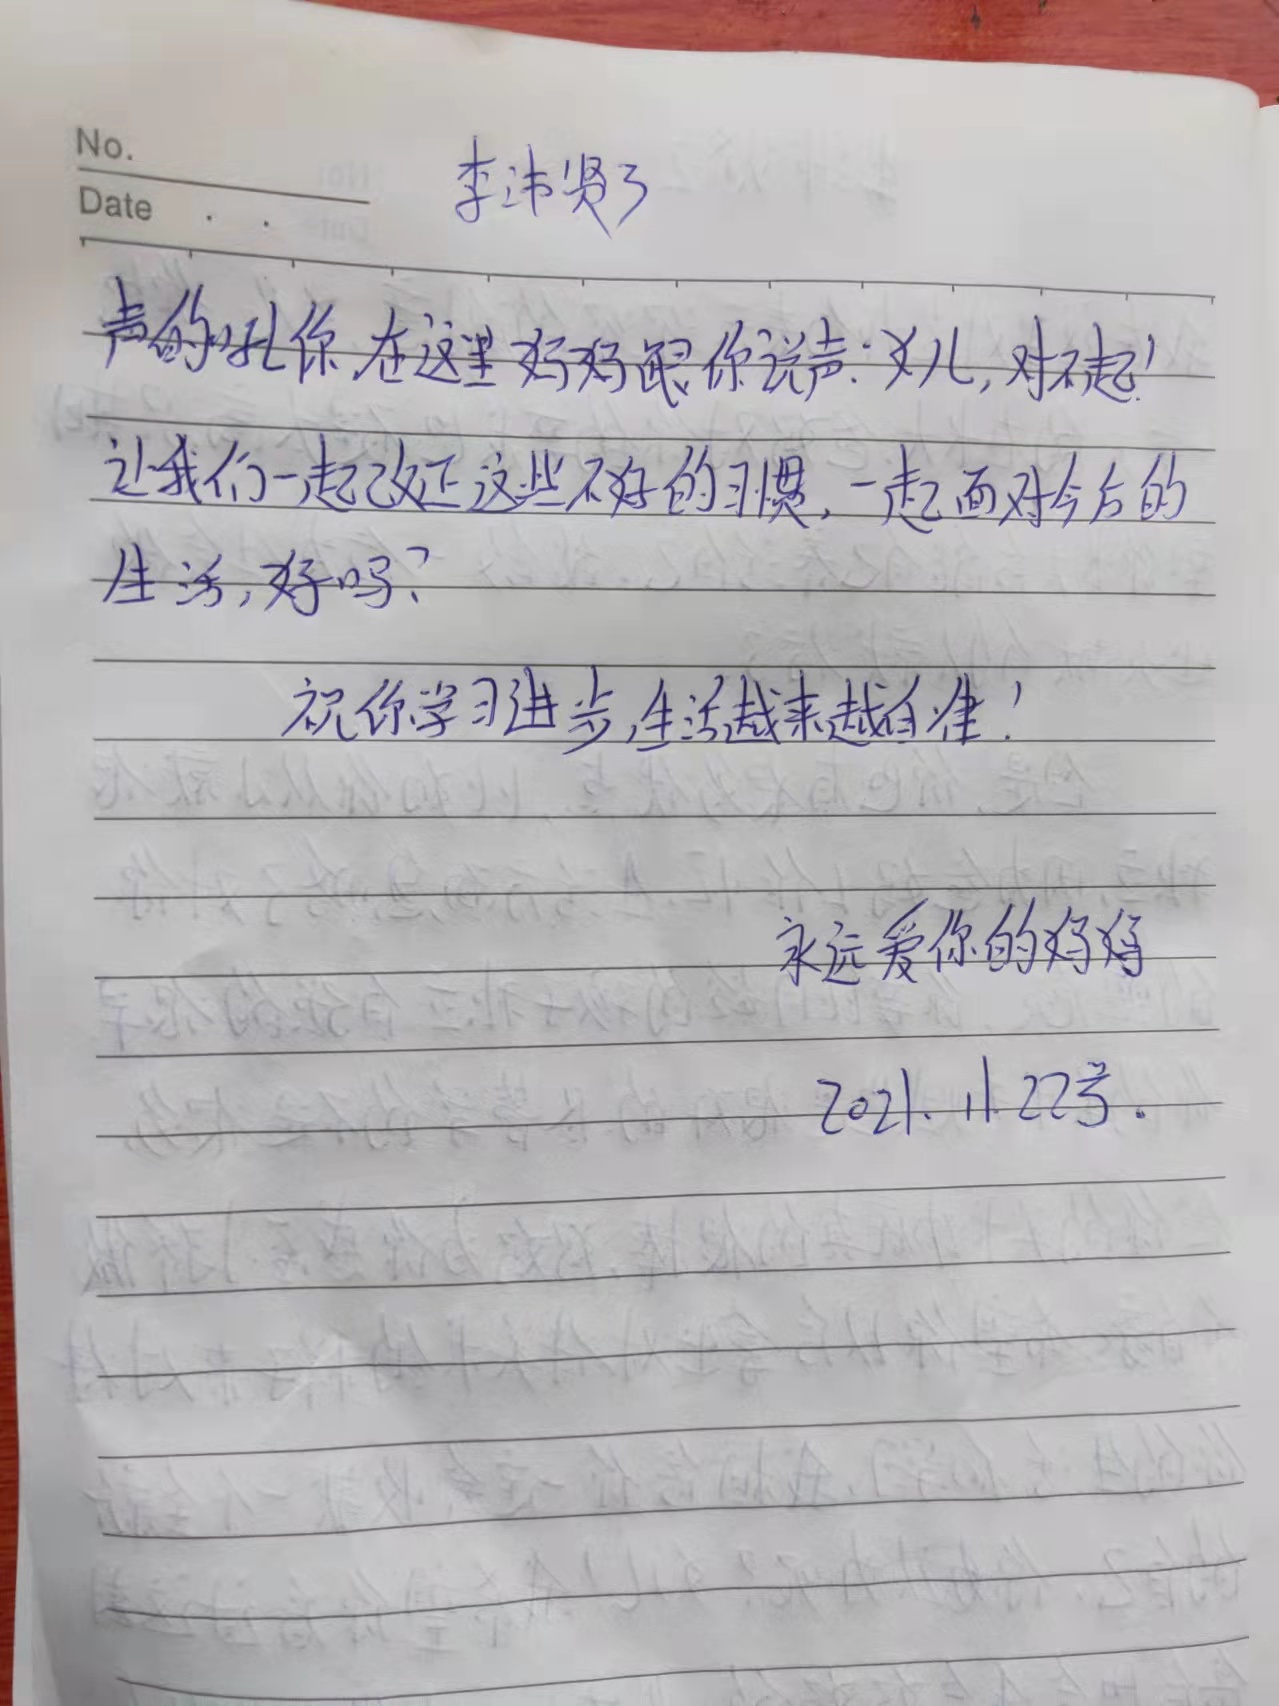 No.
Date
李沛贤3
声的吼你,在这里妈妈跟你说声:女儿,对不起!
让我们一起改正这些不好的习惯,一起面对今后的
生活,好吗?
祝你学习进步,生活越来越自律!
永远爱你的妈妈
2021.11.22号.